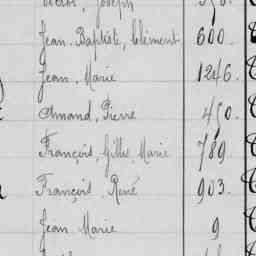 Joseph
Jean-Baptiste, Clément 600.
Jean, Marie 1246.
Amand, Pierre 450.
François, Gilles, Marie 789.
François, René 903.
Jean, Marie 9